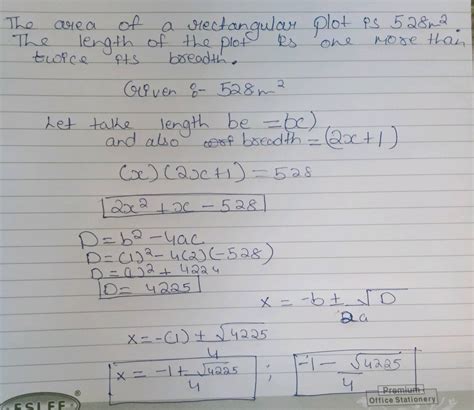 The area of a rectangular plot is 528m².
The length of the plot is one more than
twice its breadth.
Given :- 528m²
Let take length be =(x)
and also breadth=(2x+1)
(x)(2x+1)=528
2x²+x-528
D=b²-4ac
D=(1)²-4(2)(-528)
D=(1)²+4224
D= 4225
x = -b ± √D
2a
x=-(1) ± √4225
4
x = -1+√4225 ; -1-√4225
4 4
Premium
Office Stationery
ESLEE ®